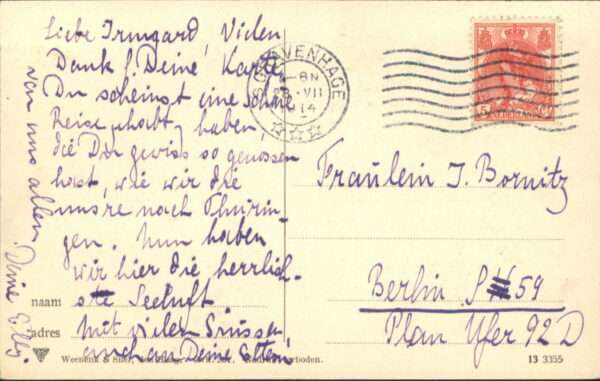 Liebe Irmgard, Vielen
Dank f. Deine Karte,
Du scheinst eine schöne
Reise gehabt haben,
die Du gewiss so genossen
hast, wie wir die
unsre nach Thürin-
gen. Nun haben
wir hier die herrlich-
ste Seeluft
Mit vielen Grüssen,
auch an Deine Eltern,
von uns allen
Deine Elly.
'S GRAVENHAGE
8-9N
28.VII
14
5 Ct
NEDERLAND
Fräulein I. Bornitz
Berlin S 59
Plan Ufer 92 D
naam
adres
Weenenk & Snel, den Haag.
verboden.
13 3355